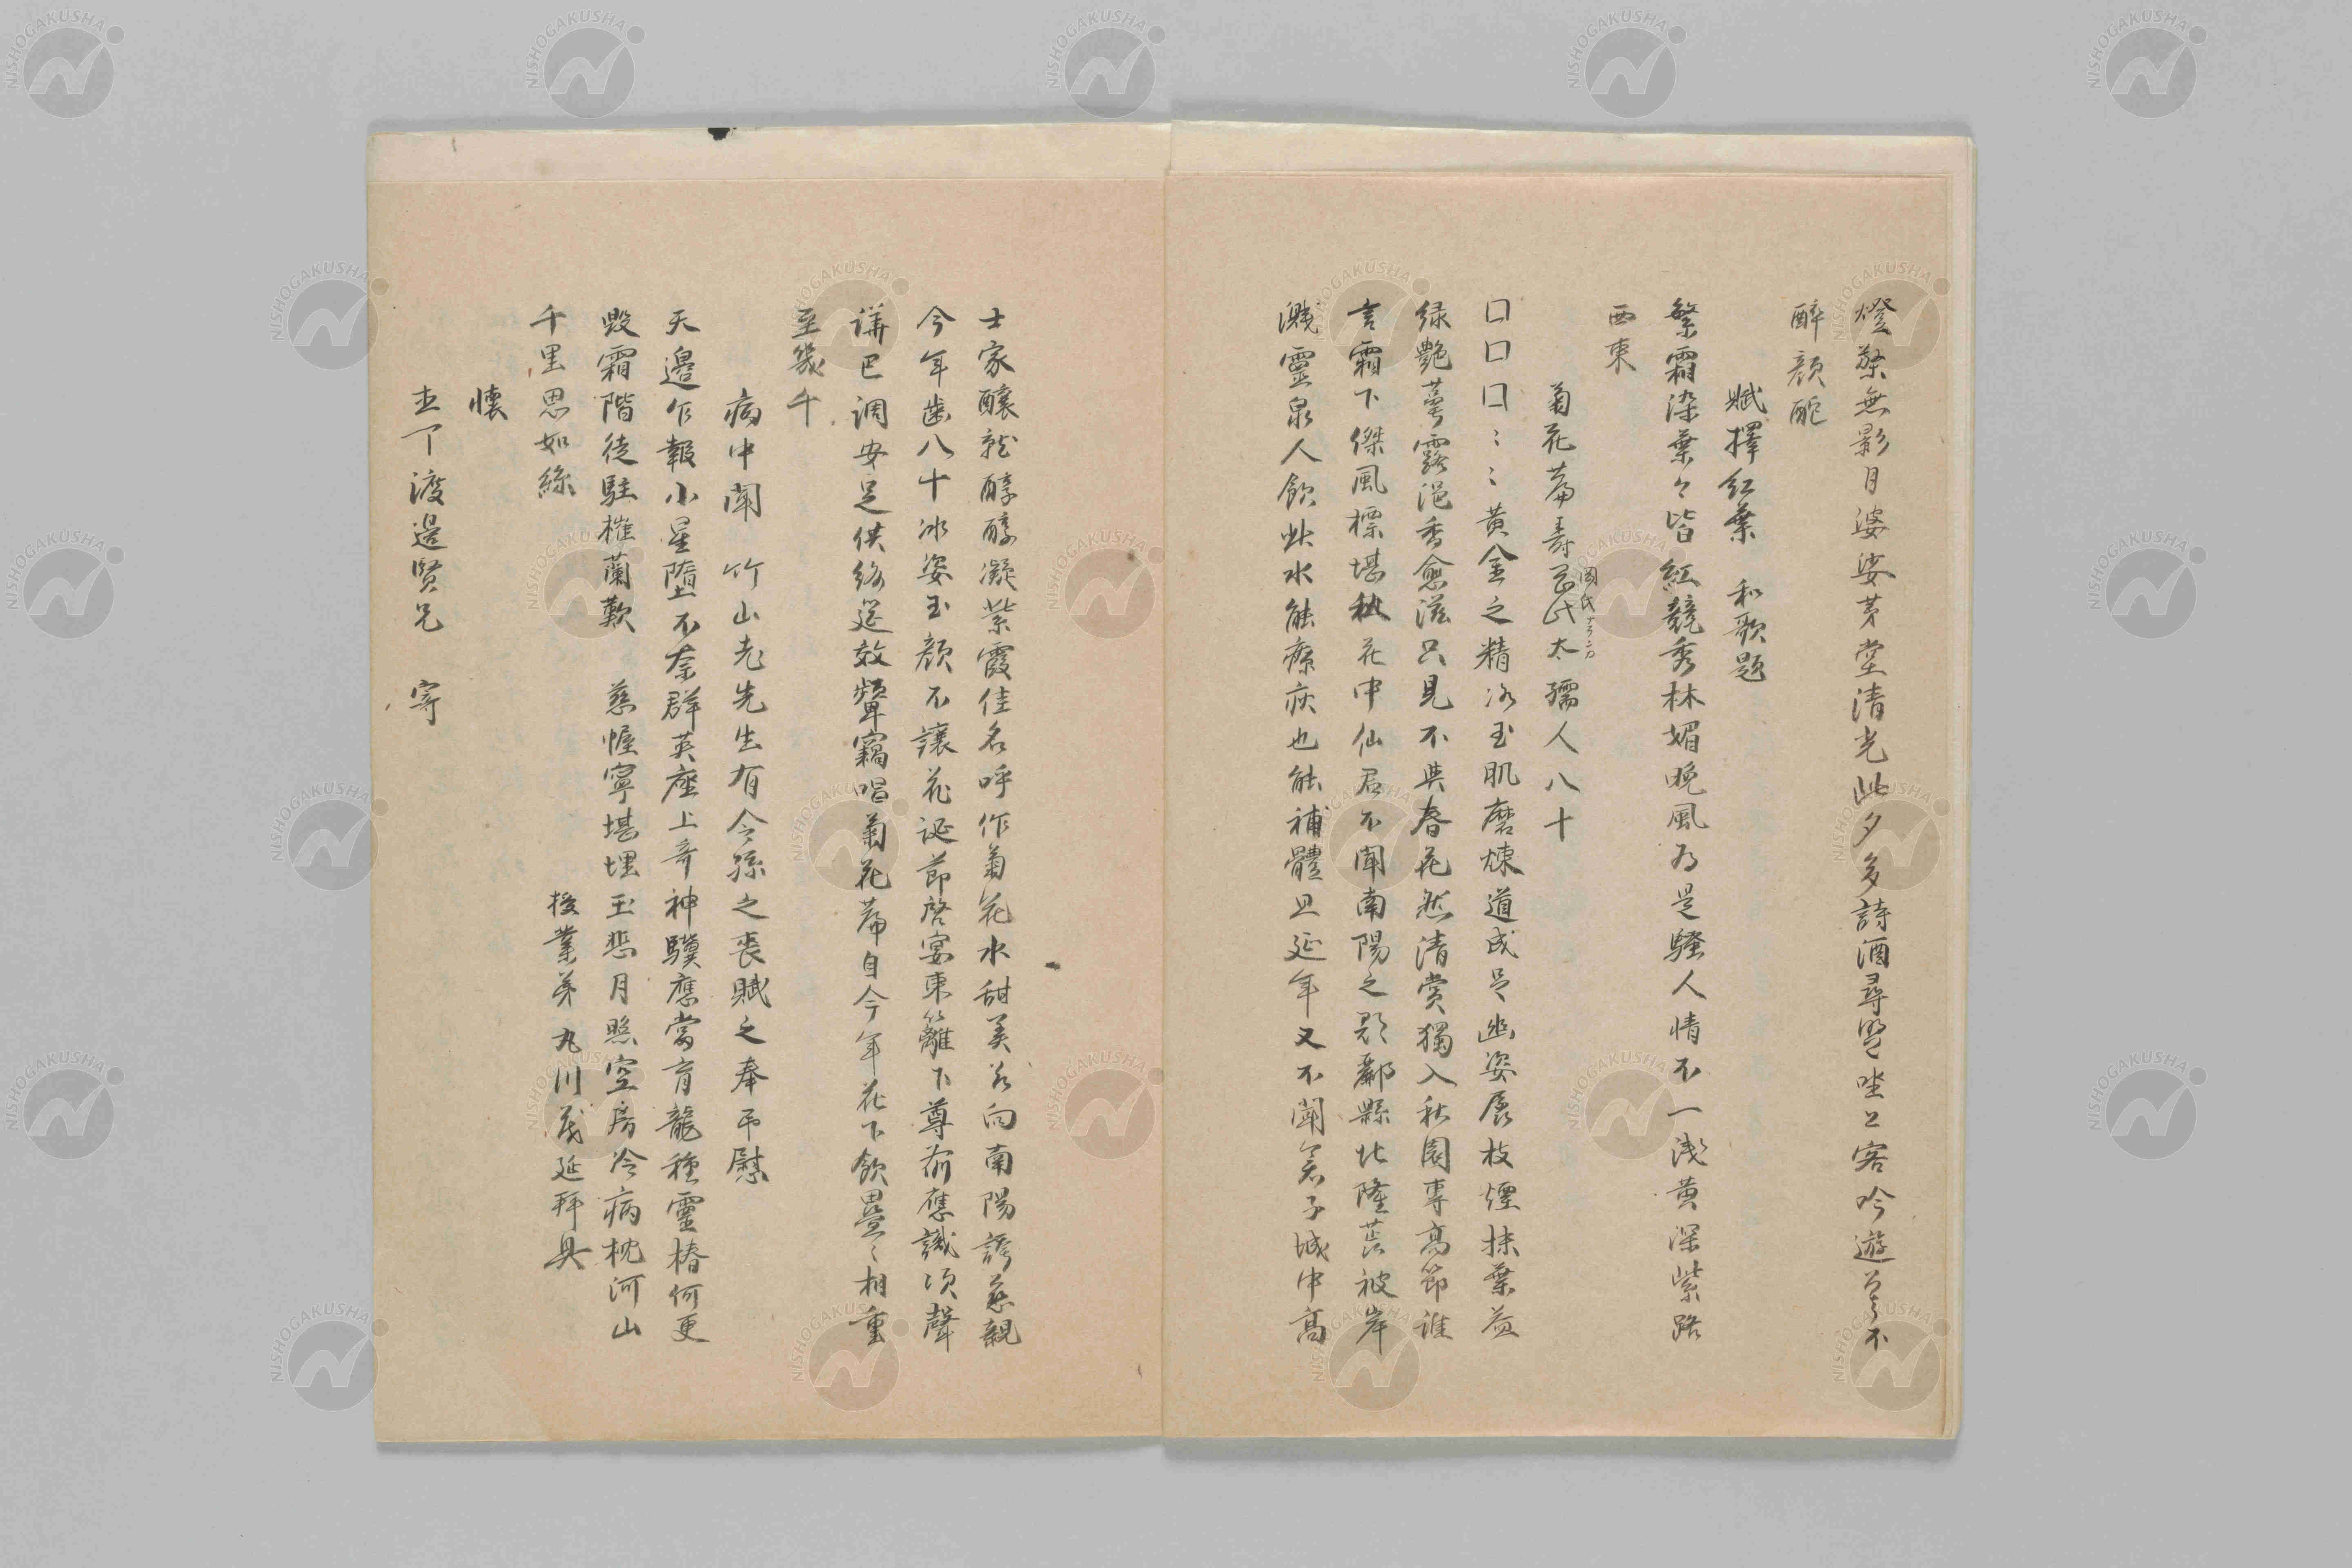 燈檠無影月婆娑茅堂清光此夕多詩酒尋盟坐上客吟遊莫不
醉顏酡
賦擇紅葉 和歌題
繁霜染葉々皆紅競秀林媚晚風為是騷人情不一淺黄深紫路
西東
菊花篇壽 氏太孺人八十
岡氏
口口口ミミ黄金之精冰玉肌磨煉道成呈幽姿展枝煙抹葉益
緑艷萼露浥香愈滋只見不與春花然清賞獨入秋園專高節誰
言霜下傑風標堪 花中仙君不聞南陽之郡酈縣北隆 被岸
濺靈泉人飲此水能療疾也能補體且延年又不聞 子城中高
士家釀就醇醇凝紫霞佳名呼作菊花水甜美 向南陽誇慈親
今年歯八十冰姿玉顏不讓花誕節啓宴東籬下尊前應識頌聲
譁巴調安足供綺筵效顰竊唱菊花篇自今年花下飲疊ミ相重
至幾千
病中聞 竹山老先生有令孫之喪賦之奉弔慰
天邊乍報小星墮不奈群英座上奇神驥應當育龍種靈椿何更
毀霜階徒駐摧蘭歎 慈幄寧堪埋玉悲月照空房冷病枕河山
千里思如絲
授業弟 丸川茂延拜具
懷
渡邉賢兄 寄
NISHOGAKUSHA